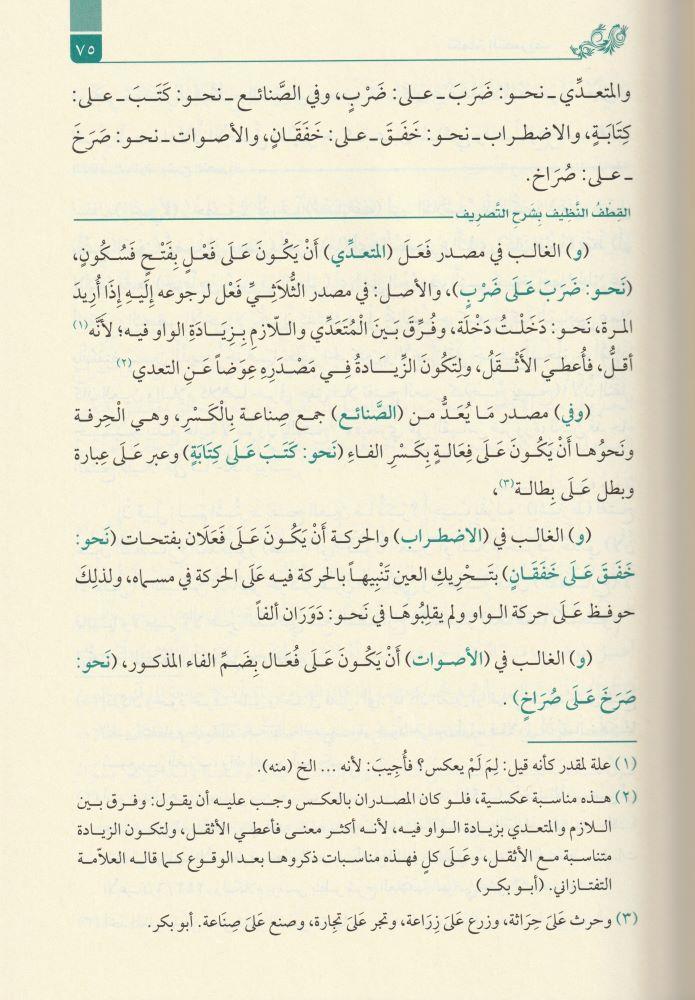 ٧٥
والمتعـدِّي ـ نحـو: ضَرَبَ ـ عـلى: ضَرْبٍ، وفي الصَّنائـع ـ نحـو: كَتَبَ ـ على:
كِتَابَـةٍ، والاضطـراب ـ نحـو: خَفَقَ ـ عـلى: خَفَقَـانٍ، والأصـوات ـ نحـو: صَرَخَ
ـ عـلى: صُرَاخ.
القِطفُ النَّظِيف بِشَرحِ التَّصرِيف
(و) الغالب في مصدر فَعَلَ (المتعدِّي) أَنْ يَكُـونَ عَلَى فَعْـلٍ بِفَتْـحٍ فَسُكُونٍ،
(نَحـو: ضَرَبَ عَلَى ضَرْبٍ)، والأصل: في مصدر الثُّلَاثِيِّ فَعْل لرجوعه إِلَيهِ إِذَا أُرِيدَ
المـرة، نَحـو: دَخَلْـتُ دَخْلَة، وفُـرِّقَ بَينَ الْمُتَعَدِّي واللازم بِـزِيَادَةِ الواو فيـه؛ لأَنَّه(١)
أقلُّ، فأُعطيَ الأَثْـقَلُ، ولِتَكُونَ الزِّيَـادَةُ فِـي مَصْدَرِهِ عِوَضاً عَنِ التعدي(٢)
(وفي) مصدر مَـا يُعَـدُّ مـن (الصَّنائع) جمع صِناعـة بِالْكَسْـرِ، وهـي الْحِرفـة
ونَحوُهـا أَنْ يَكُونَ عَلَى فِعَالـةٍ بِكَسْرِ الفـاءِ (نَحو: كَتَبَ عَلَى كِتابَةٍ) وعبر عَلَى عِبارة
وبطل عَلَى بِطالـة(٣)،
(و) الغالـب في (الاضطِراب) والحركـة أَنْ يَكُـونَ عَلَى فَعَلَان بفتحـات (نَحو:
خَفَقَ عَلَى خَفَقَـانٍ) بتَـحْرِيكِ العين تَنْبِيهـاً بالحركة فيـه عَلَى الحركة في مسماه، ولذلِكَ
حوفـظ عَـلَى حركة الـواو ولم يقلِبُوهَا في نَحو: دَوَرَان ألفاً
(و) الغالب في (الأصوات) أَنْ يَكُونَ عَلَى فُعَال بِضَمِّ الفاء المذكـور، (نَحو:
صَرَخَ عَلَى صُرَاخٍ) .
(١) علة لمقدر كأنه قيل: لِمَ لَمْ يعكس؟ فأُجِيبَ: لأنه ... الخ (منه).
(٢) هـذه مناسبة عكسية، فلـو كان المصدران بالعكس وجب عليـه أن يقول: وفـرق بين
اللازم والمتعدي بزيادة الواو فيه، لأنه أكثر معنى فأعطي الأثقل، ولتكون الزيادة
متناسبة مع الأثقل، وعَـلَى كلٍ فهـذه مناسبات ذكروها بعـد الوقوع كـما قاله العلاّمـة
التفتازاني. (أبو بكر)
(٣) وحرث عَلىَ حِرَاثة، وزرع عَلىَ زِرَاعة، وتجر عَلىَ تِجارة، وصنع عَلىَ صِنَاعة. أبو بكر.